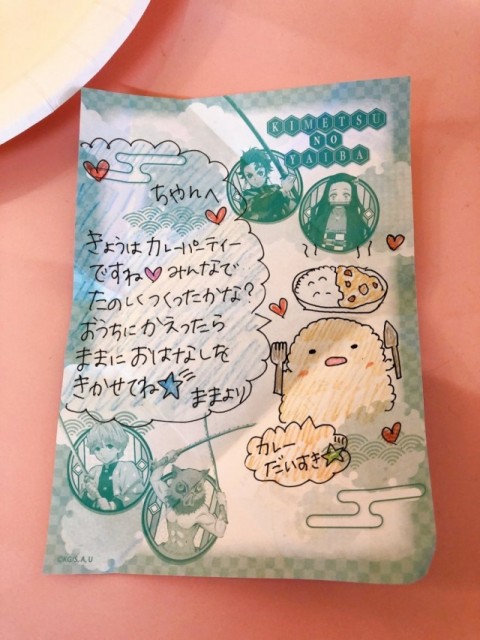 KIMETSU
NO
YAIBA
ちゃんへ
きょうは カレーパーティー
ですね♥ みんなで
たのしくつくったかな?
おうちにかえったら
ままに おはなしを
きかせてね☆
ままより
カレー
だいすき☆
©KG,S,A,U